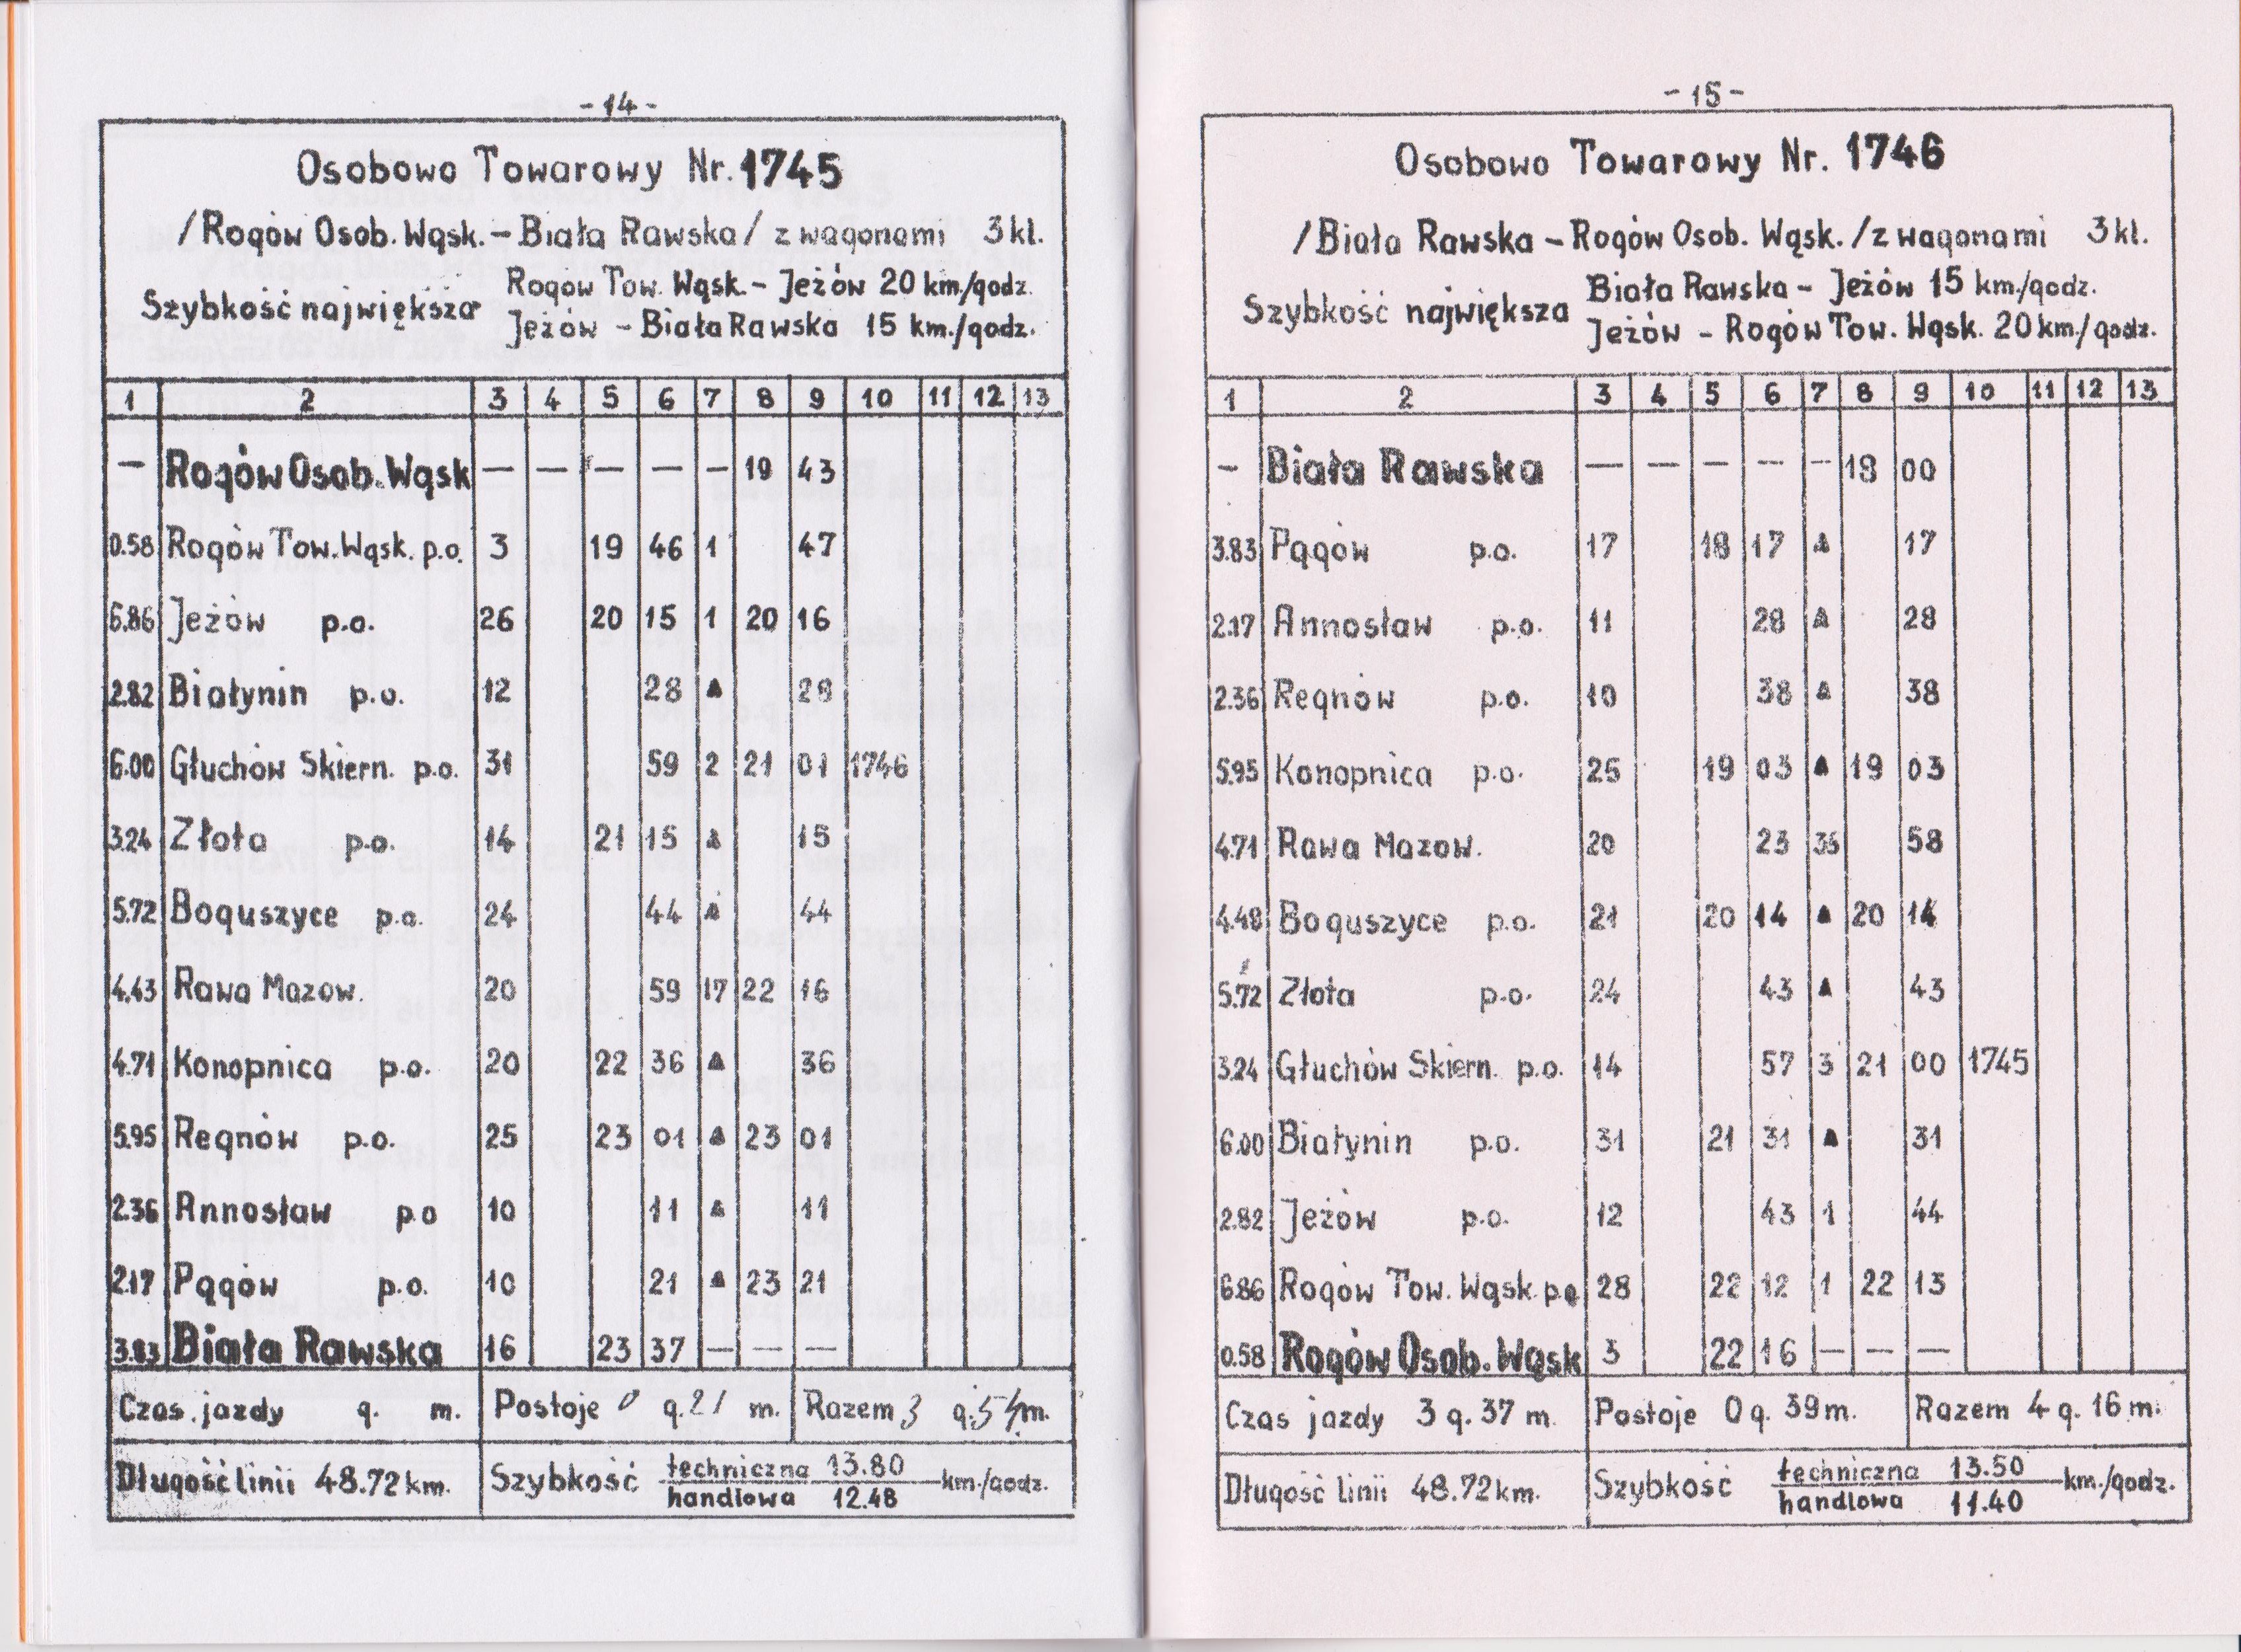 - 14 -
Osobowo Towarowy Nr. 1745
/Rogów Osob. Wąsk. - Biała Rawska/ z wagonami 3 kl.
Szybkość największa
Rogów Tow. Wąsk. - Jeżów 20 km./godz.
Jeżów - Biała Rawska 15 km./godz.
1 2 3 4 5 6 7 8 9 10 11 12 13
— Rogów Osob. Wąsk — — — — — 19 43
0.58 Rogów Tow. Wąsk. p.o. 3 19 46 1 47
6.86 Jeżów p.o. 26 20 15 1 20 16
2.82 Białynin p.o. 12 28 ▲ 28
6.00 Głuchów Skiern. p.o. 31 59 2 21 01 1746
3.24 Złota p.o. 14 21 15 ▲ 15
5.72 Boguszyce p.o. 24 44 ▲ 44
4.43 Rawa Mazow. 20 59 17 22 16
4.71 Konopnica p.o. 20 22 36 ▲ 36
5.95 Regnów p.o. 25 23 01 ▲ 23 01
2.36 Annosław p.o 10 11 ▲ 11
2.17 Pągów p.o. 10 21 ▲ 23 21
3.83 Biała Rawska 16 23 37 — — —
Czas jazdy g. m. Postoje 0 g. 21 m. Razem 3 g. 54 m.
Długość linii 48.72 km. Szybkość techniczna 13.80 km./godz.
handlowa 12.48
- 15 -
Osobowo Towarowy Nr. 1746
/Biała Rawska - Rogów Osob. Wąsk. / z wagonami 3 kl.
Szybkość największa
Biała Rawska - Jeżów 15 km./godz.
Jeżów - Rogów Tow. Wąsk. 20 km./godz.
1 2 3 4 5 6 7 8 9 10 11 12 13
— Biała Rawska — — — — — 18 00
3.83 Pągów p.o. 17 18 17 ▲ 17
2.17 Annosław p.o. 11 28 ▲ 28
2.36 Regnów p.o. 10 38 ▲ 38
5.95 Konopnica p.o. 25 19 03 ▲ 19 03
4.71 Rawa Mazow. 20 23 35 58
4.48 Boguszyce p.o. 21 20 14 ▲ 20 14
5.72 Złota p.o. 24 43 ▲ 43
3.24 Głuchów Skiern. p.o. 14 57 3 21 00 1745
6.00 Białynin p.o. 31 21 31 ▲ 31
2.82 Jeżów p.o. 12 43 1 44
6.86 Rogów Tow. Wąsk. p.o 28 22 12 1 22 13
0.58 Rogów Osob. Wąsk 3 22 16 — — —
Czas jazdy 3 g. 37 m. Postoje 0 g. 39 m. Razem 4 g. 16 m.
Długość linii 48.72 km. Szybkość techniczna 13.50 km./godz.
handlowa 11.40